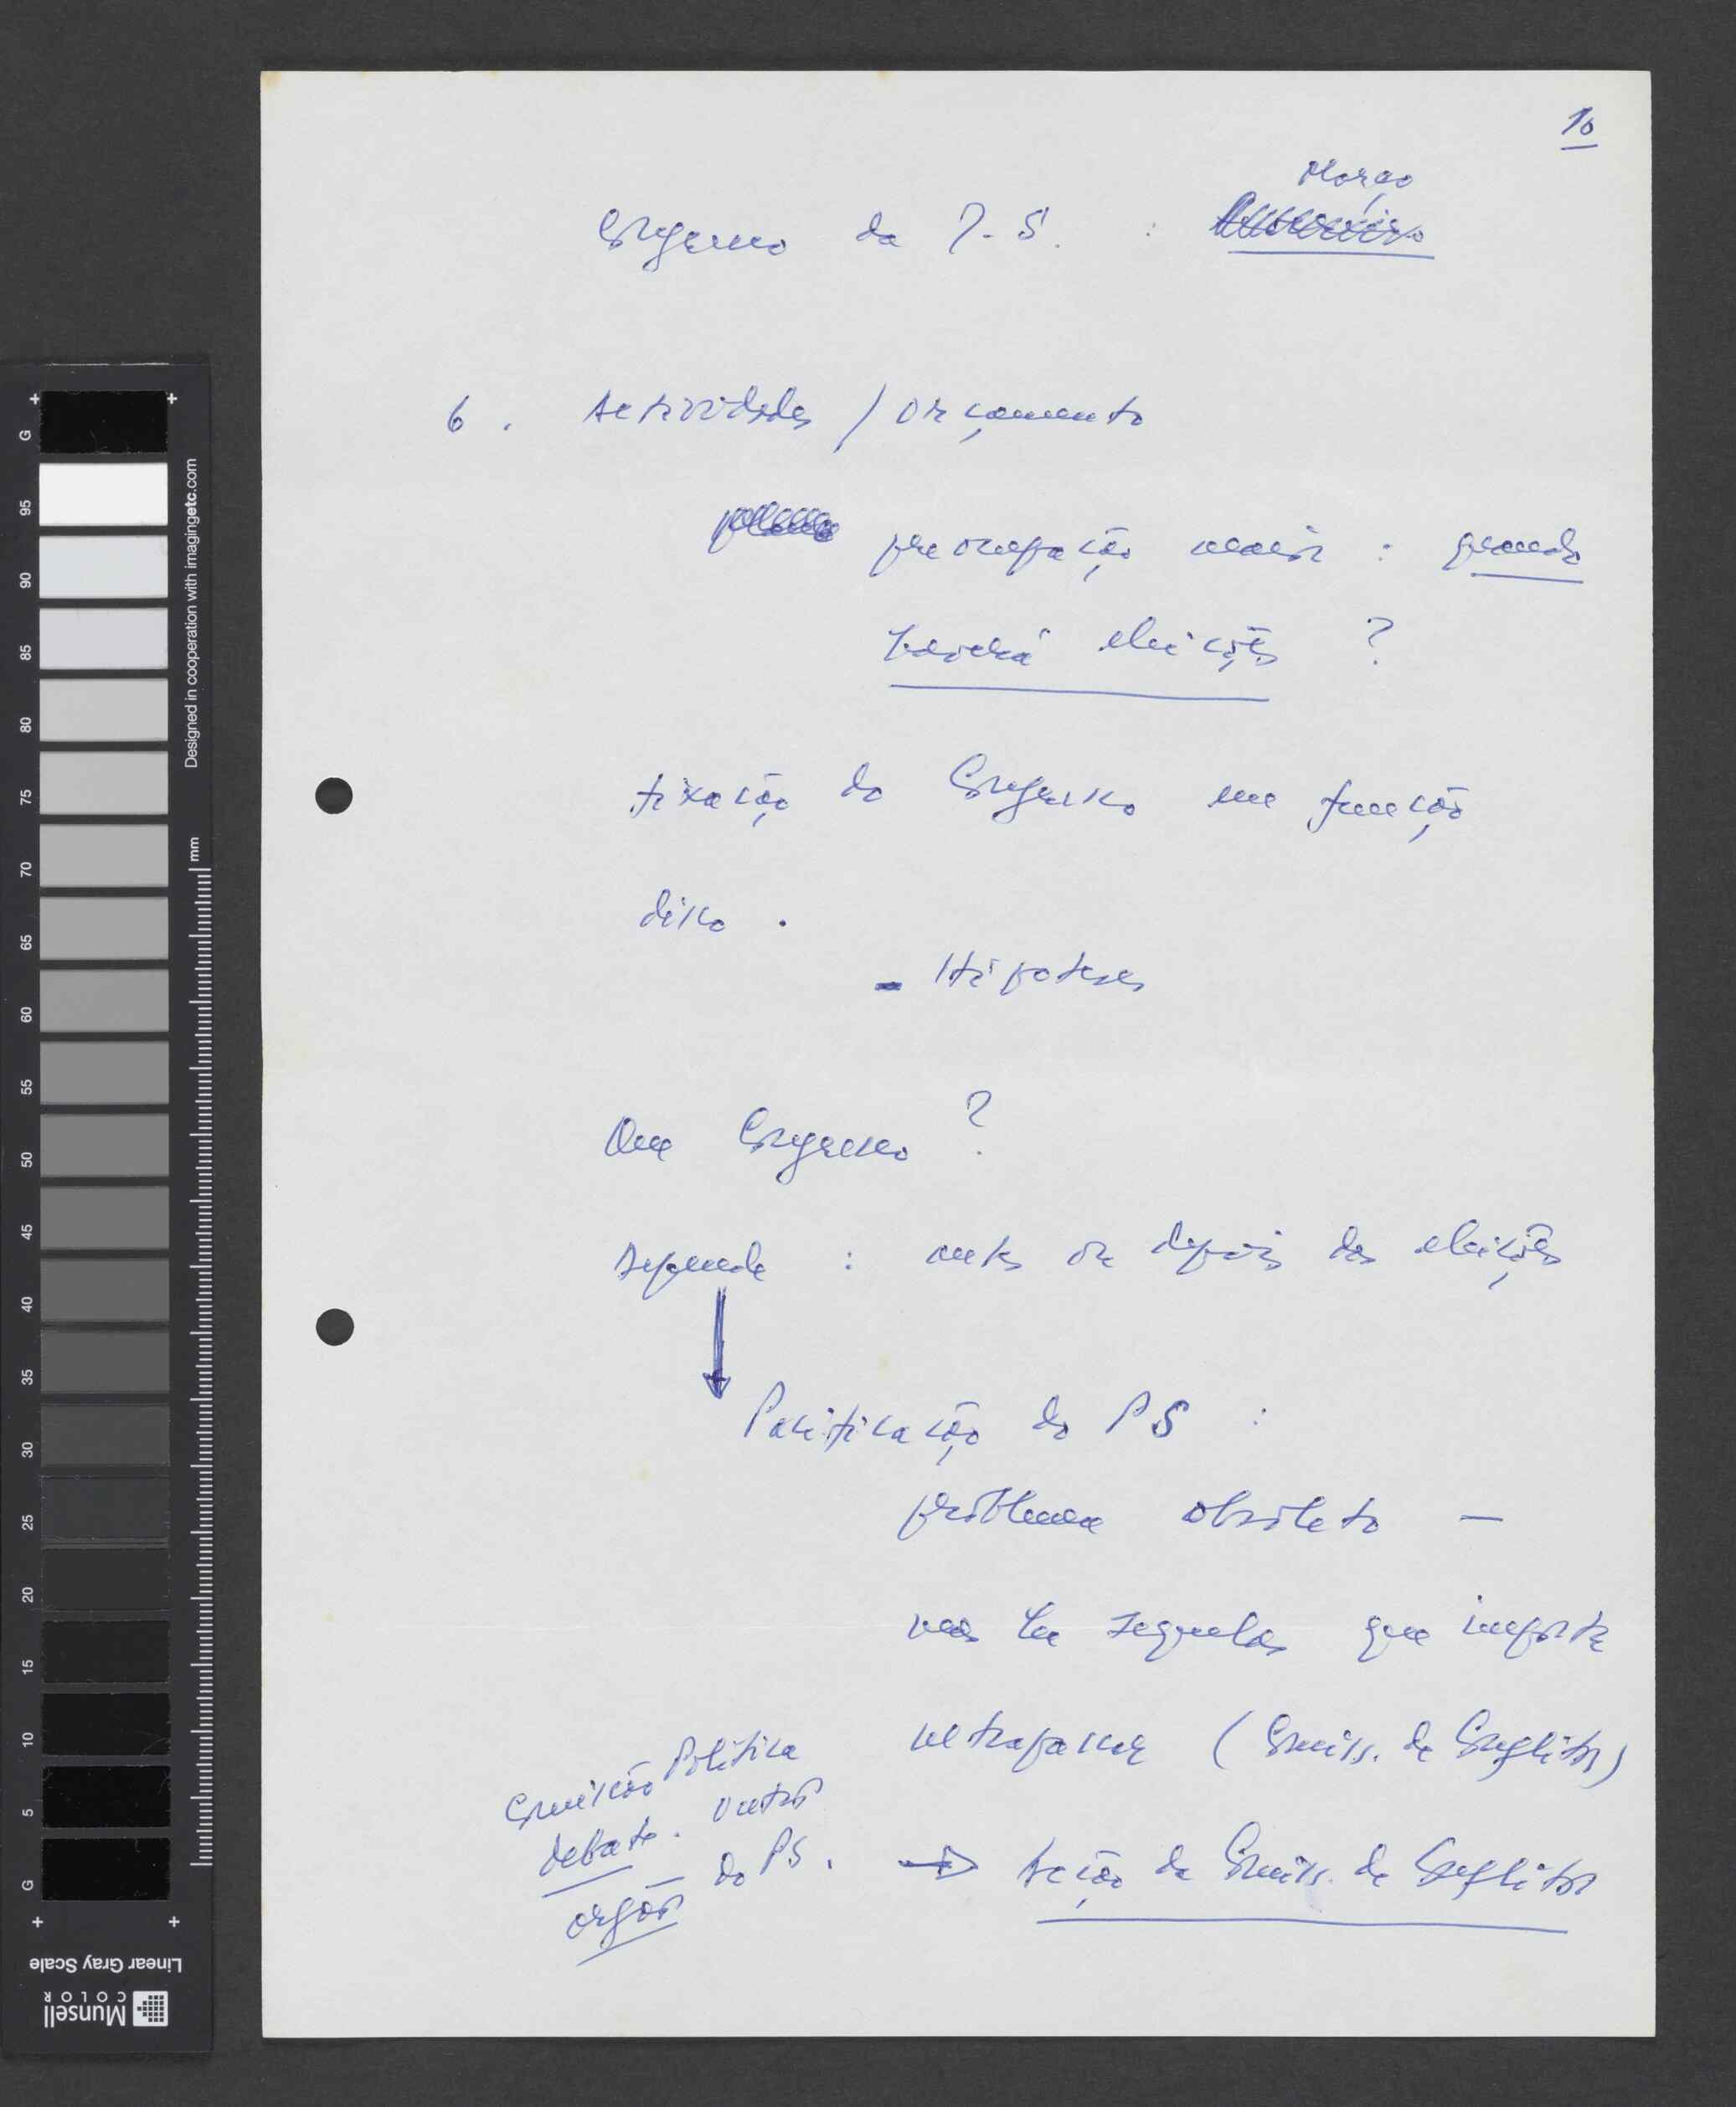 10
Março
Congresso da I.S. :
6. Actividades / Orçamento
preocupação maior : quando
haverá eleições ?
fixação do Congresso em função
disso.
- Hipoteses
Que Congresso ?
Depende : antes ou depois das eleições
Pacificação do PS :
problema obsoleto —
mas há sequelas que importa
ultrapassar (Comiss. de Conflitos)
Comissão Politica
debate. outros
orgãos do PS.
→ Acção da Comiss. de Conflitos
G
95
90
85
80
75
70
65
60
55
50
45
40
35
30
25
20
15
10
5
G
mm
Designed in cooperation with imagingetc.com
Linear Gray Scale
Munsell
COLOR